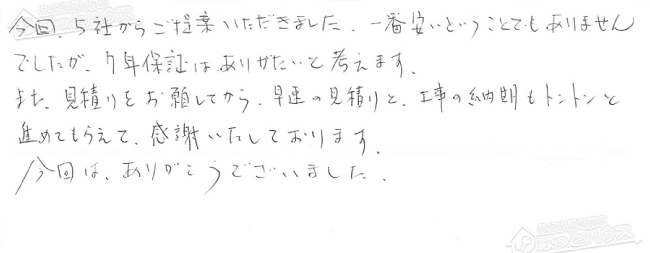 今回、5社からご提案いただきました。一番安いということでもありません
でしたが、7年保証はありがたいと考えます。
また、見積りをお願してから、早速の見積りと、工事の納期もトントンと
進めてもらえて、感謝いたしております。
今回は、ありがとうございました。